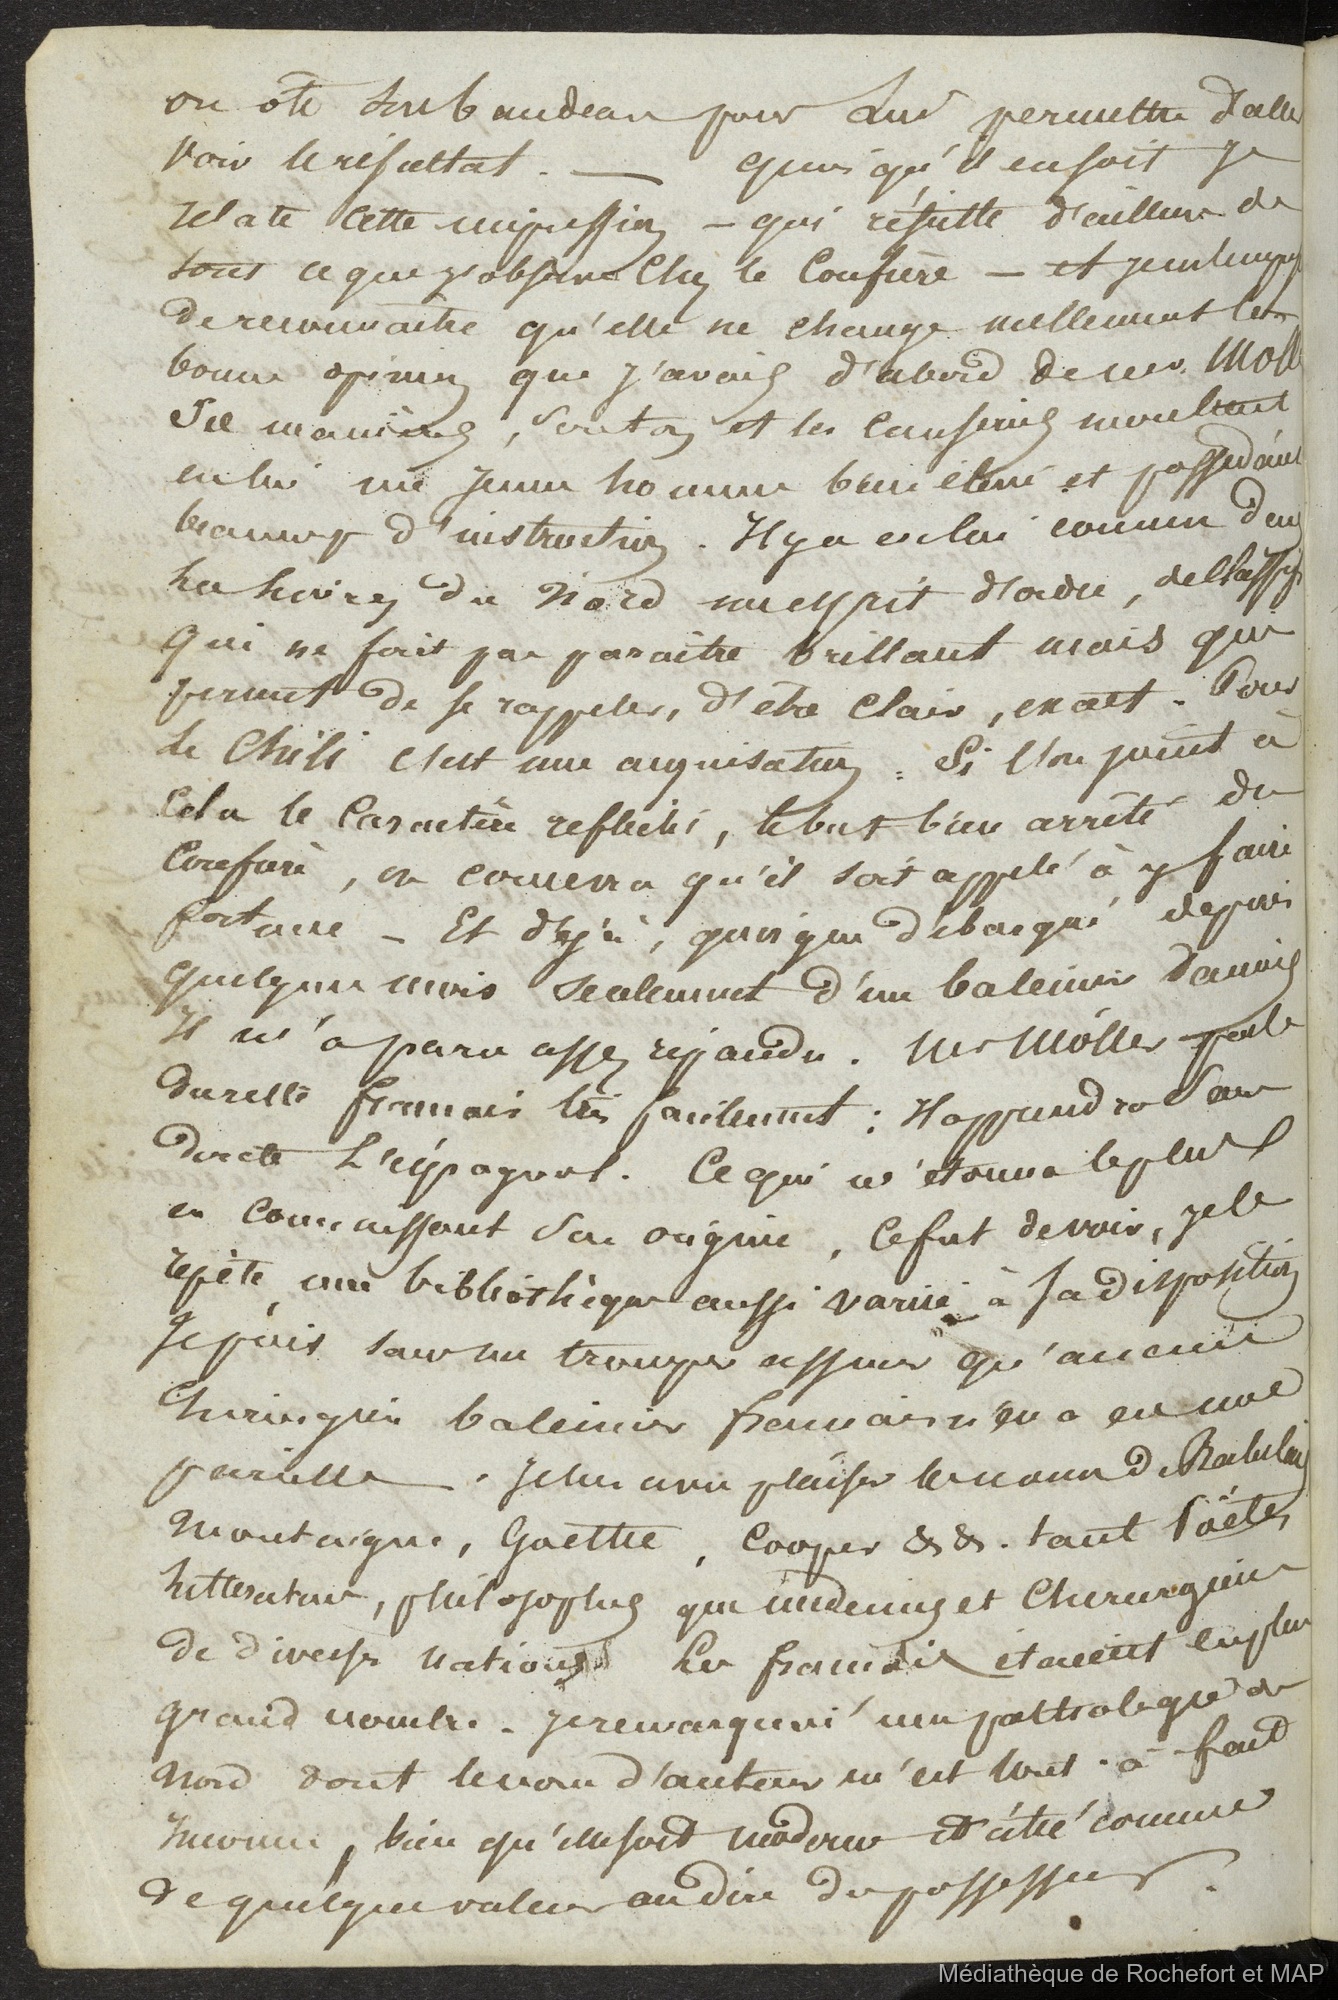 on ôte son bandeau pour lui permettre d'aller
voir le résultat. — quoiqu'il en soit je
relate cette impression – qui résulte d'ailleurs de
tout ce que j'observe chez le Confrère – et je m'empresse
de reconnaître qu'elle ne change nullement la
bonne opinion que j'avais d'abord de Mr. Moll
Ses manières, son ton et les causeries montrent
en lui un jeune homme bien élevé et possédant
beaucoup d'instruction. Il y a en lui comme dans
les hommes du Nord un esprit d'ordre, de
qui ne fait pas paraître brillant mais qui
permet de se rappeler, d'être clair, exact. Pour
le Chili c'est une acquisation. Si l'on joint à
cela le Caractère reflechi, le but bien arrêté du
Confrère, on conviendra qu'il soit appelé à y faire
fortune – Et déjà, quoique débarqué depuis
quelques mois seulement d'un baleinier Danois
Il m'a paru assez répandu. Mr Möller parle
du reste français très facilement; Il apprendra sans
doute l'espagnol. Ce qui m'étonna le plus
en connaissant son origine, ce fut de voir, je le
répète, une bibliothèque aussi variée à sa disposition
Je puis sans me tromper assurer qu'aucun
Chirurgien baleinier français n'en a eu une
pareille. Je lus avec plaisir les noms de Rabelais
Montaigne, Goëthe, Cooper &&. tant Poëtes
Litterateurs, philosophes que médecins et Chirurgiens
de diverses nations Les français étaient en plus
grand nombre. Je remarquai une pathologie du
Nord dont le nom d'auteur m'est tout-à-fait
Inconnu, bien qu'elle soit moderne et citée comme
de quelque valeur au dire du possesseur.
Médiathèque de Rochefort et MAP